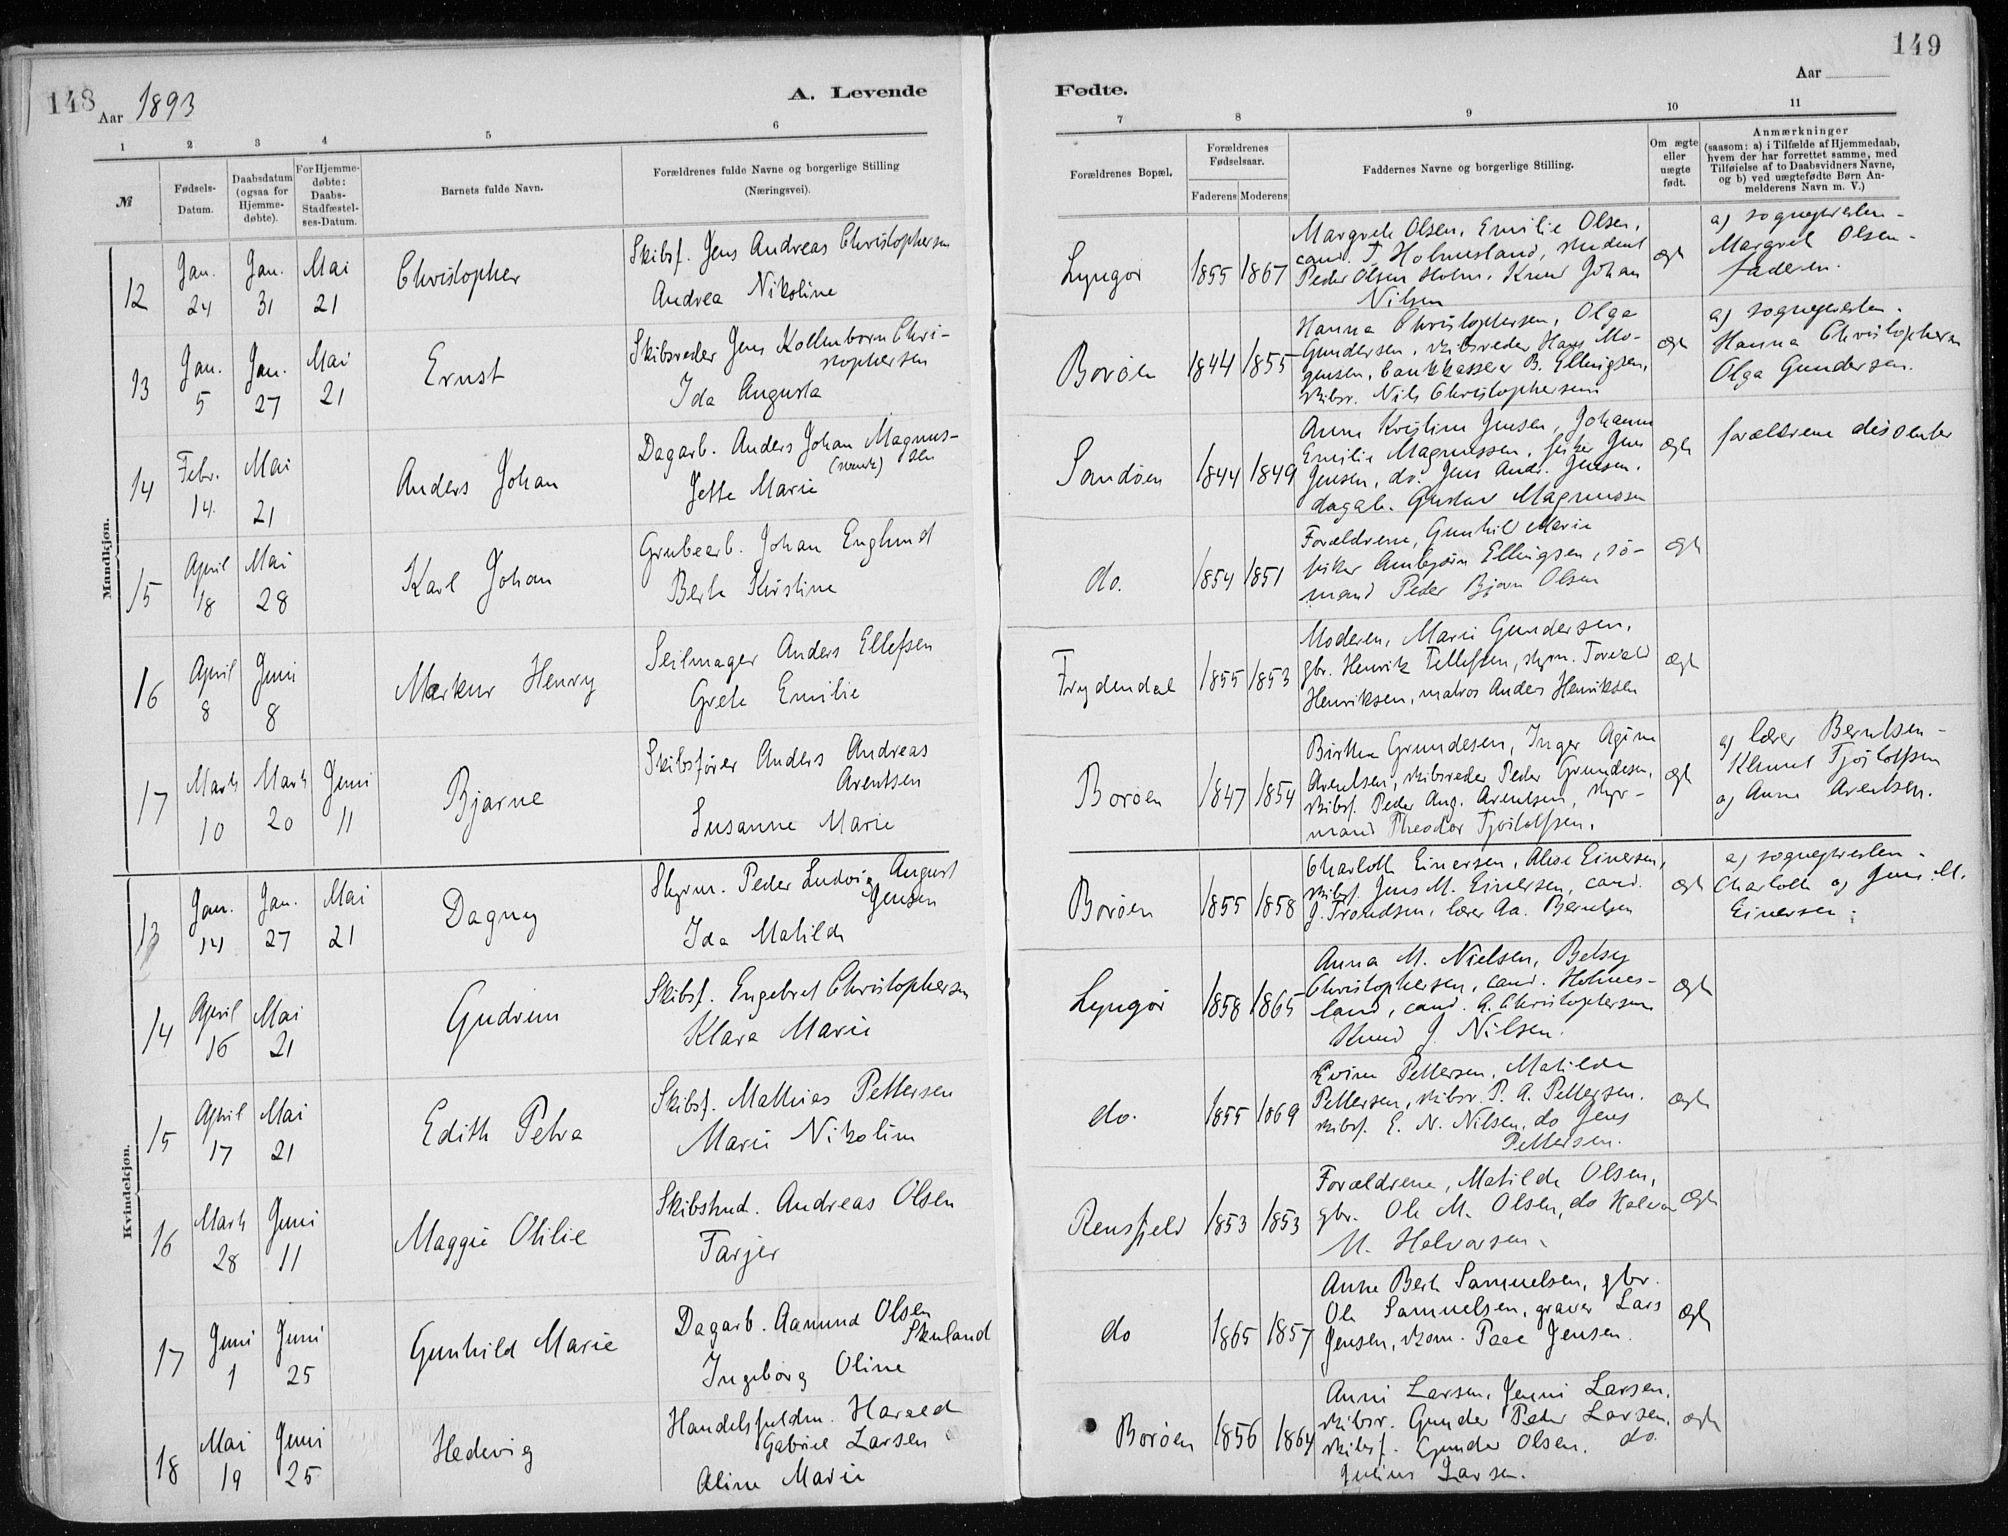 148
Aar 1893
A. Levende
1 2 3 4 5 6
№
Fødsels-Datum.
Daabsdatum (ogsaa for Hjemme-døbte).
For Hjemme-døbte: Daabs-Stadfæstel-ses-Datum.
Barnets fulde Navn.
Forældrenes fulde Navne og borgerlige Stilling
(Næringsvei).
Mandkjøn.
12 Jan. 24 Jan. 31 Mai 21 Christopher
Skibsf. Jens Andreas Christophersen
Andrea Nikoline
13 Jan. 5 Jan. 27 Mai 21 Ernst
Skibsreder Jens Kallenborn Chri-
stophersen
Ida Augusta
14 Febr. 14 Mai 21 Anders Johan
Dagarb. Anders Johan Magnus-
(svensk) sen
Jette Marie
15 April 18 Mai 28 Karl Johan
Grubearb. Johan Englund
Berte Kirstine
16 April 8 Juni 8 Markus Henry
Seilmager Anders Ellefsen
Grete Emilie
17 Marts 10 Marts 20 Juni 11 Bjarne
Skibsfører Anders Andreas
Arentsen
Susanne Marie
Kvindekjøn.
13 Jan. 14 Jan. 27 Mai 21 Dagny
Styrm. Peder Ludvig August
Jensen
Ida Matilde
14 April 16 Mai 21 Gudrun
Skibsf. Engebret Christophersen
Klara Marie
15 April 17 Mai 21 Edith Petra
Skibsf. Mathias Pettersen
Marie Nikoline
16 Marts 28 Juni 11 Maggie Otilie
Skibstmd. Andreas Olsen
Tarjer
17 Juni 1 Juni 25 Gunhild Marie
Dagarb. Aamund Olsen
Skuland
Ingeborg Oline
18 Mai 19 Juni 25 Hedevig
Handelsfuldm. Harald
Gabriel Larsen
Aline Marie
149
Aar
Fødte.
7 8 9 10 11
Forældrenes Bopæl.
Forældrenes Fødselsaar.
Faderens Moderens
Faddernes Navne og borgerlige Stilling.
Om ægte eller uægte født.
Anmærkninger
(saasom: a) i Tilfælde af Hjemmedaab,
hvem der har forrettet samme, med
Tilføielse af to Daabsvidners Navne,
og b) ved uægtefødte Børn An-
melderens Navn m. V.)
Lyngør 1855 1867
Margrete Olsen, Emilie Olsen,
cand. T. Holmesland, student
Peder Olsen Holm, Knud Johan
Nilsen
ægte
a) sognepresten -
Margrete Olsen -
faderen.
Borøen 1844 1855
Hanna Christophersen, Olga
Gundersen, skibsreder Hans Mo-
gensen, bankkasserer B. Ellingsen,
skibsr. Nils Christophersen
ægte
a) sognepresten -
Hanna Christophersen
Olga Gundersen.
Sandøen 1844 1849
Anne Kristine Jensen, Johanne
Emilie Magnussen, fisker Jens
Jensen, do. Jens Andr. Jensen,
dagarb. Gustav Magnussen
ægte
forældrene dissenter
do. 1854 1851
Forældrene, Gunhil Marie
fisker Ambjørn Ellingsen, sø-
mand Peder Bjørn Olsen
ægte
Frydendal 1855 1853
Moderen, Marie Gundersen,
gbr. Henrik Tellefsen, styrm. Torvald
Henriksen, matros Anders Henriksen
ægte
Borøen 1847 1854
Birthe Grundesen, Inger Agine
Arentsen, skibsreder Peder Grundesen,
skibsf. Peder Aug. Arentsen, styr-
mand Theodor Tjøstolfsen.
ægte
a) lærer Berntsen -
Tjøstolfsen
og Anne Arentsen.
Borøen 1855 1858
Charlotte Einersen, Alise Einersen,
skibsf. Jens M. Einersen, cand.
J. Trondsen, lærer Aa. Berntsen
ægte
a) sognepresten -
Charlotte og Jens M.
Einersen.
Lyngør 1858 1865
Anna M. Nielsen, Betsy
Christophersen, cand. Holmes-
land, cand. A. Christophersen
Knud J. Nilsen.
ægte
do. 1855 1869
Pettersen, Matilde
Pettersen, skibsr. P. A. Pettersen,
skibsf. E. N. Nilsen, do Jens
Pettersen.
ægte
Rensfjeld 1853 1853
Forældrene, Matilde Olsen,
gbr. Ole M. Olsen, do Halvor
M. Halvorsen.
ægte
do 1865 1857
Anne Berte Samuelsen, gbr.
Ole Samuelsen, graver Lars
Jensen, skom. Peer Jensen.
ægte
Borøen 1856 1864
Anni Larsen, Jenni Larsen,
skibsr. Gunder Peder Larsen,
skibsf. Gunder Olsen, do.
Julius Larsen.
ægte